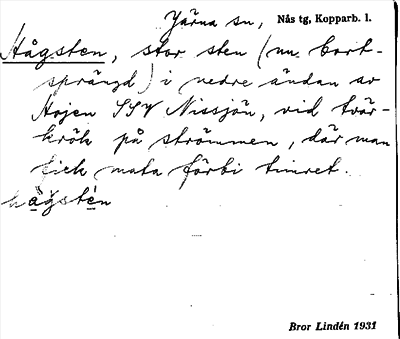 Järna sn, Nås tg, Kopparb. l.
Hågsten, stor sten (nu bort-
sprängd) i nedre ändan av
Hojen SSV Nissjön, vid tvär-
krök på strömmen, där man
fick mata förbi timret.
hågstèn
Bror Lindén 1931